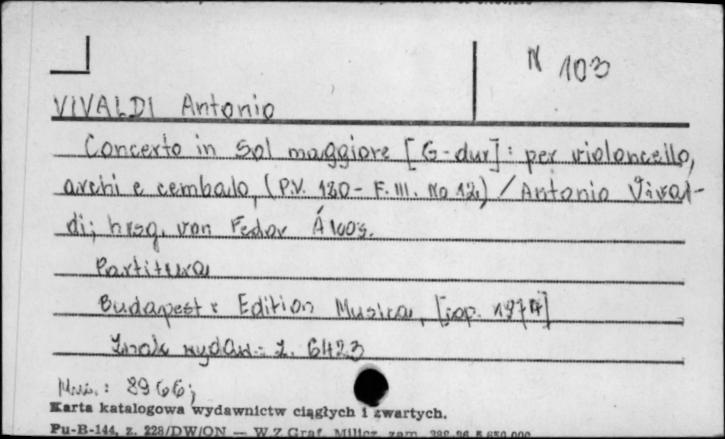 N 103
VIVALDI Antonio
Concerto in Sol maggiore [G-dur] : per violoncello,
archi e cembalo, (P.V. 120 - F. III. No 12) / Antonio Vival-
di; hrsg. von Fedor
Partitura
Budapest : Edition Musica, [cop. 1974]
Znak wydaw.: Z. 6423
Mus.: 8966;
Karta katalogowa wydawnictw ciągłych i zwartych.
Pu-B-144, z. 228/DW/ON — W.Z.Graf. Milicz, zam.